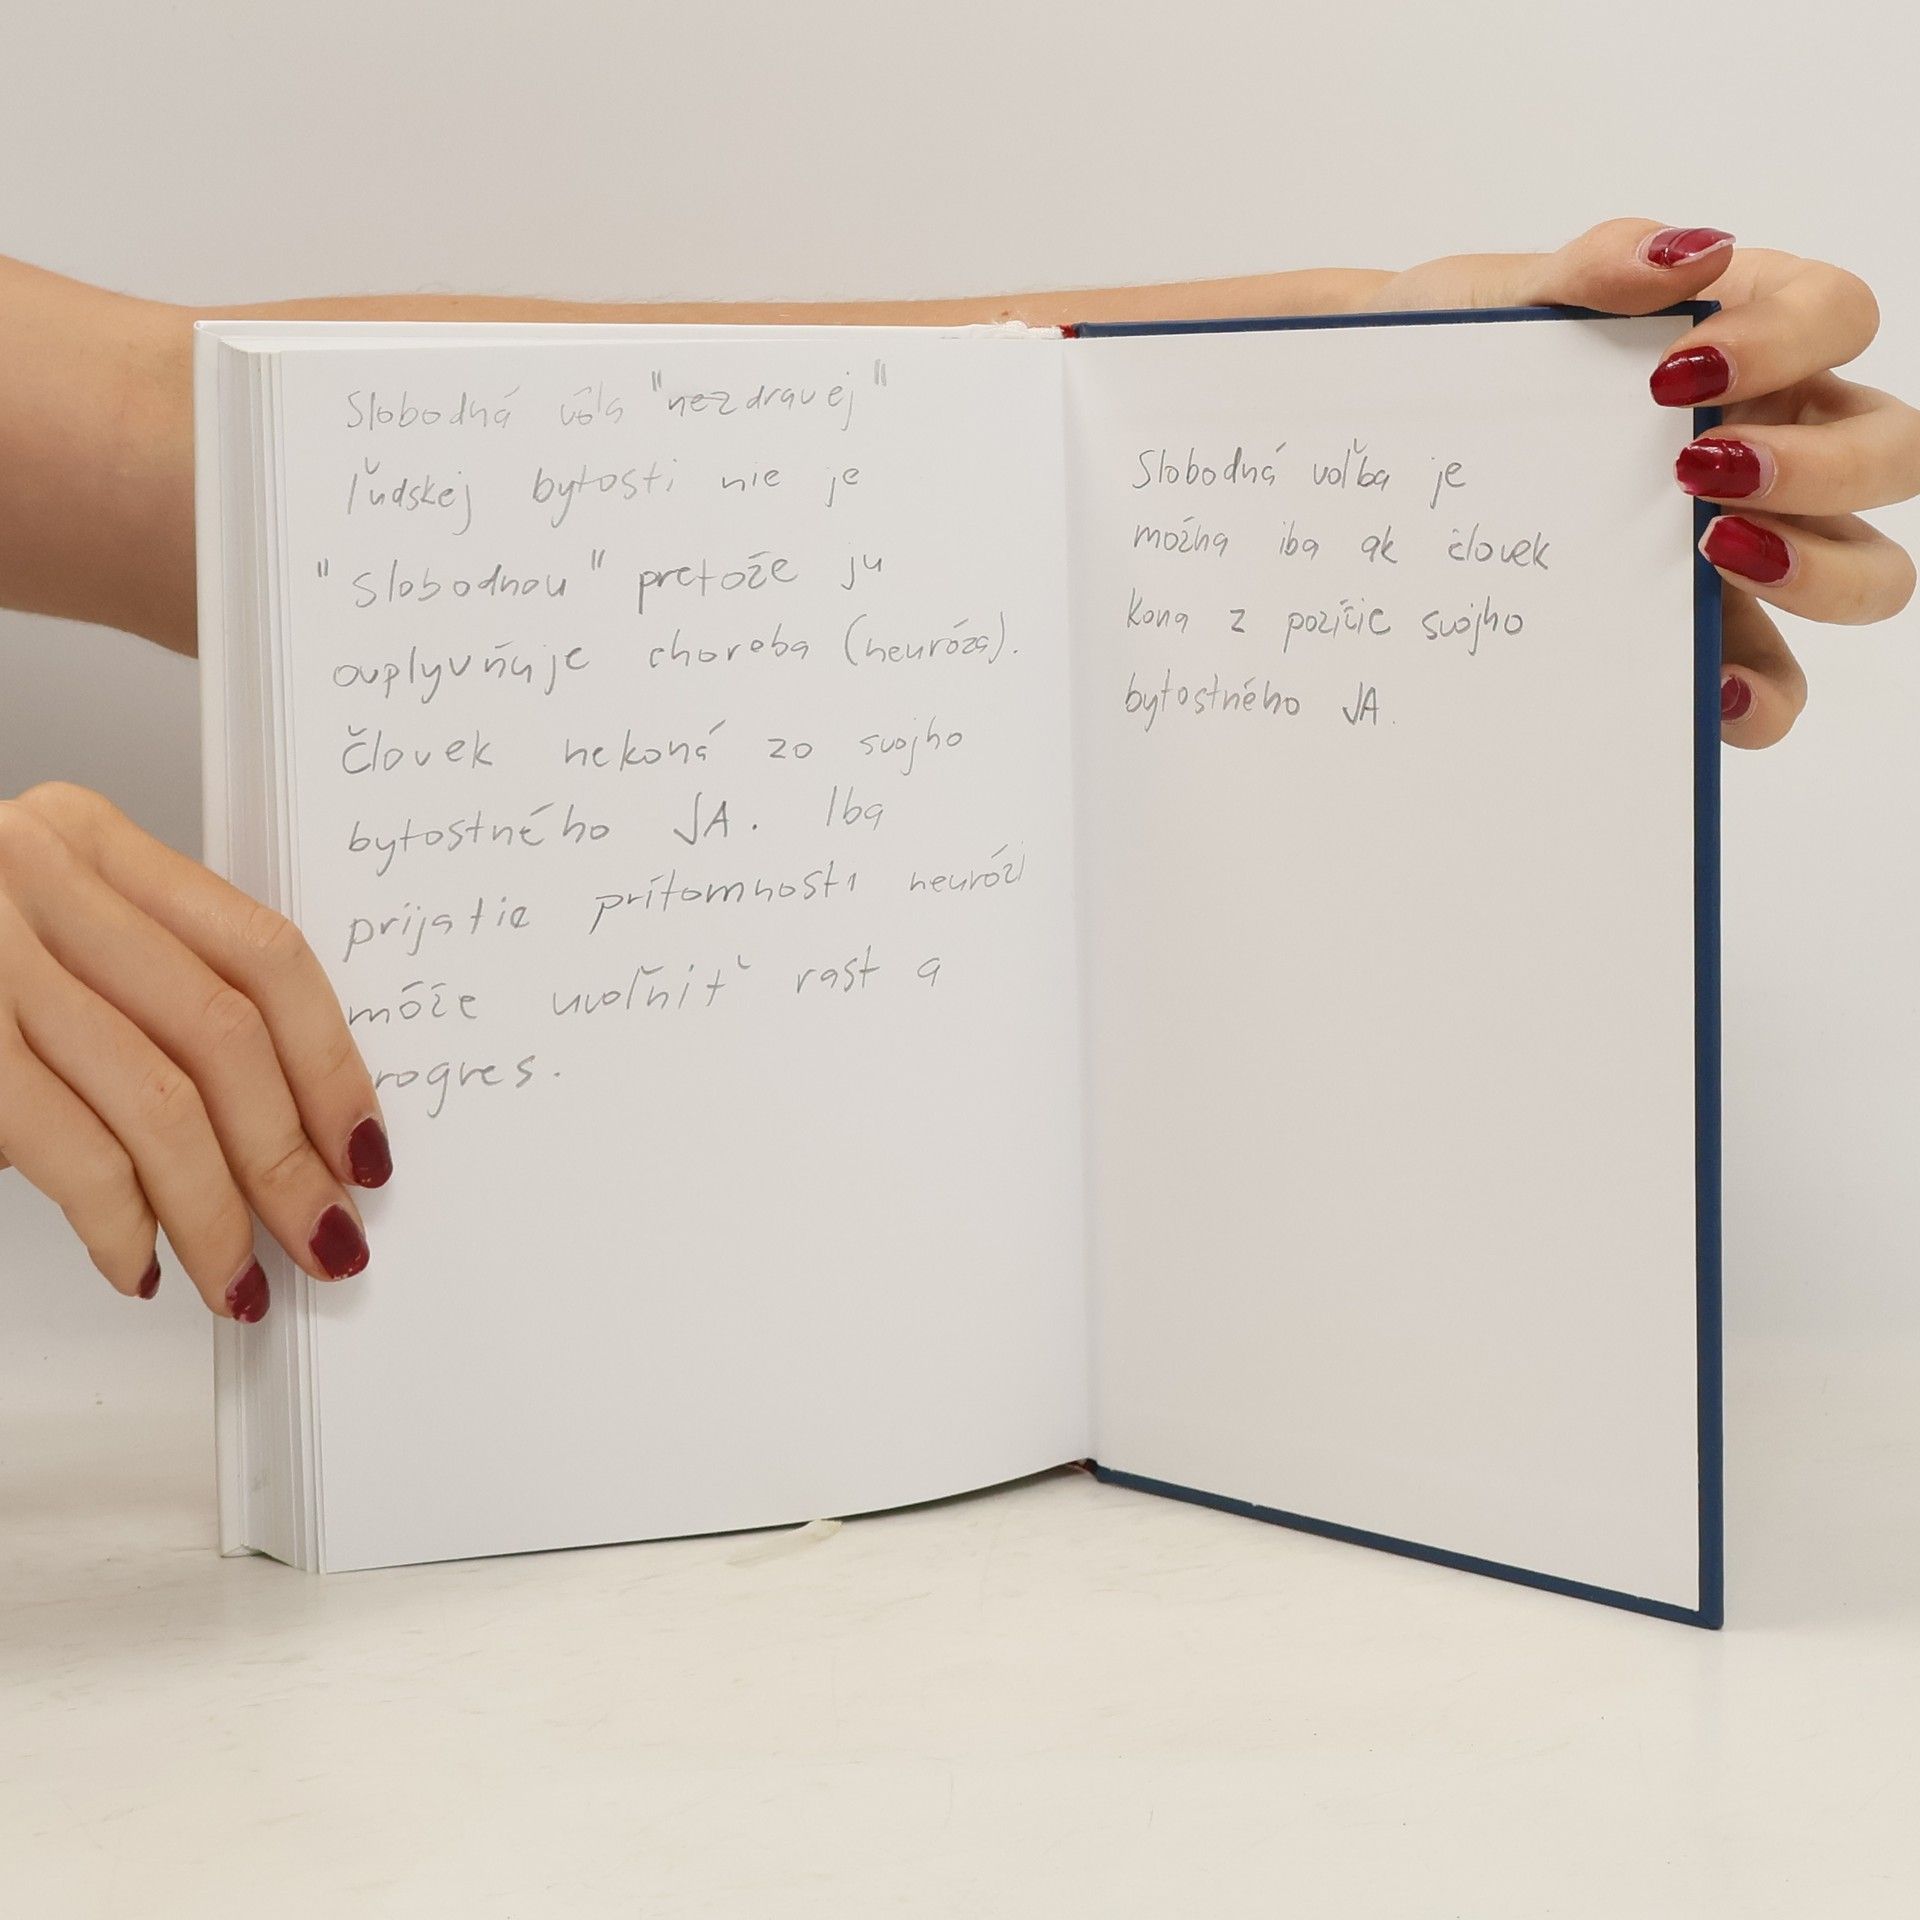 Slobodná vôľa "nezdravej"
ľudskej bytosti nie je
"slobodnou" pretože ju
ovplyvňuje choroba (neuróza).
Človek nekoná zo svojho
bytostného JA. Iba
prijatie prítomnosti neurózi
môže uvoľniť rast a
rogres.
Slobodná voľba je
možna iba ak človek
kona z pozície svojho
bytostného JA.